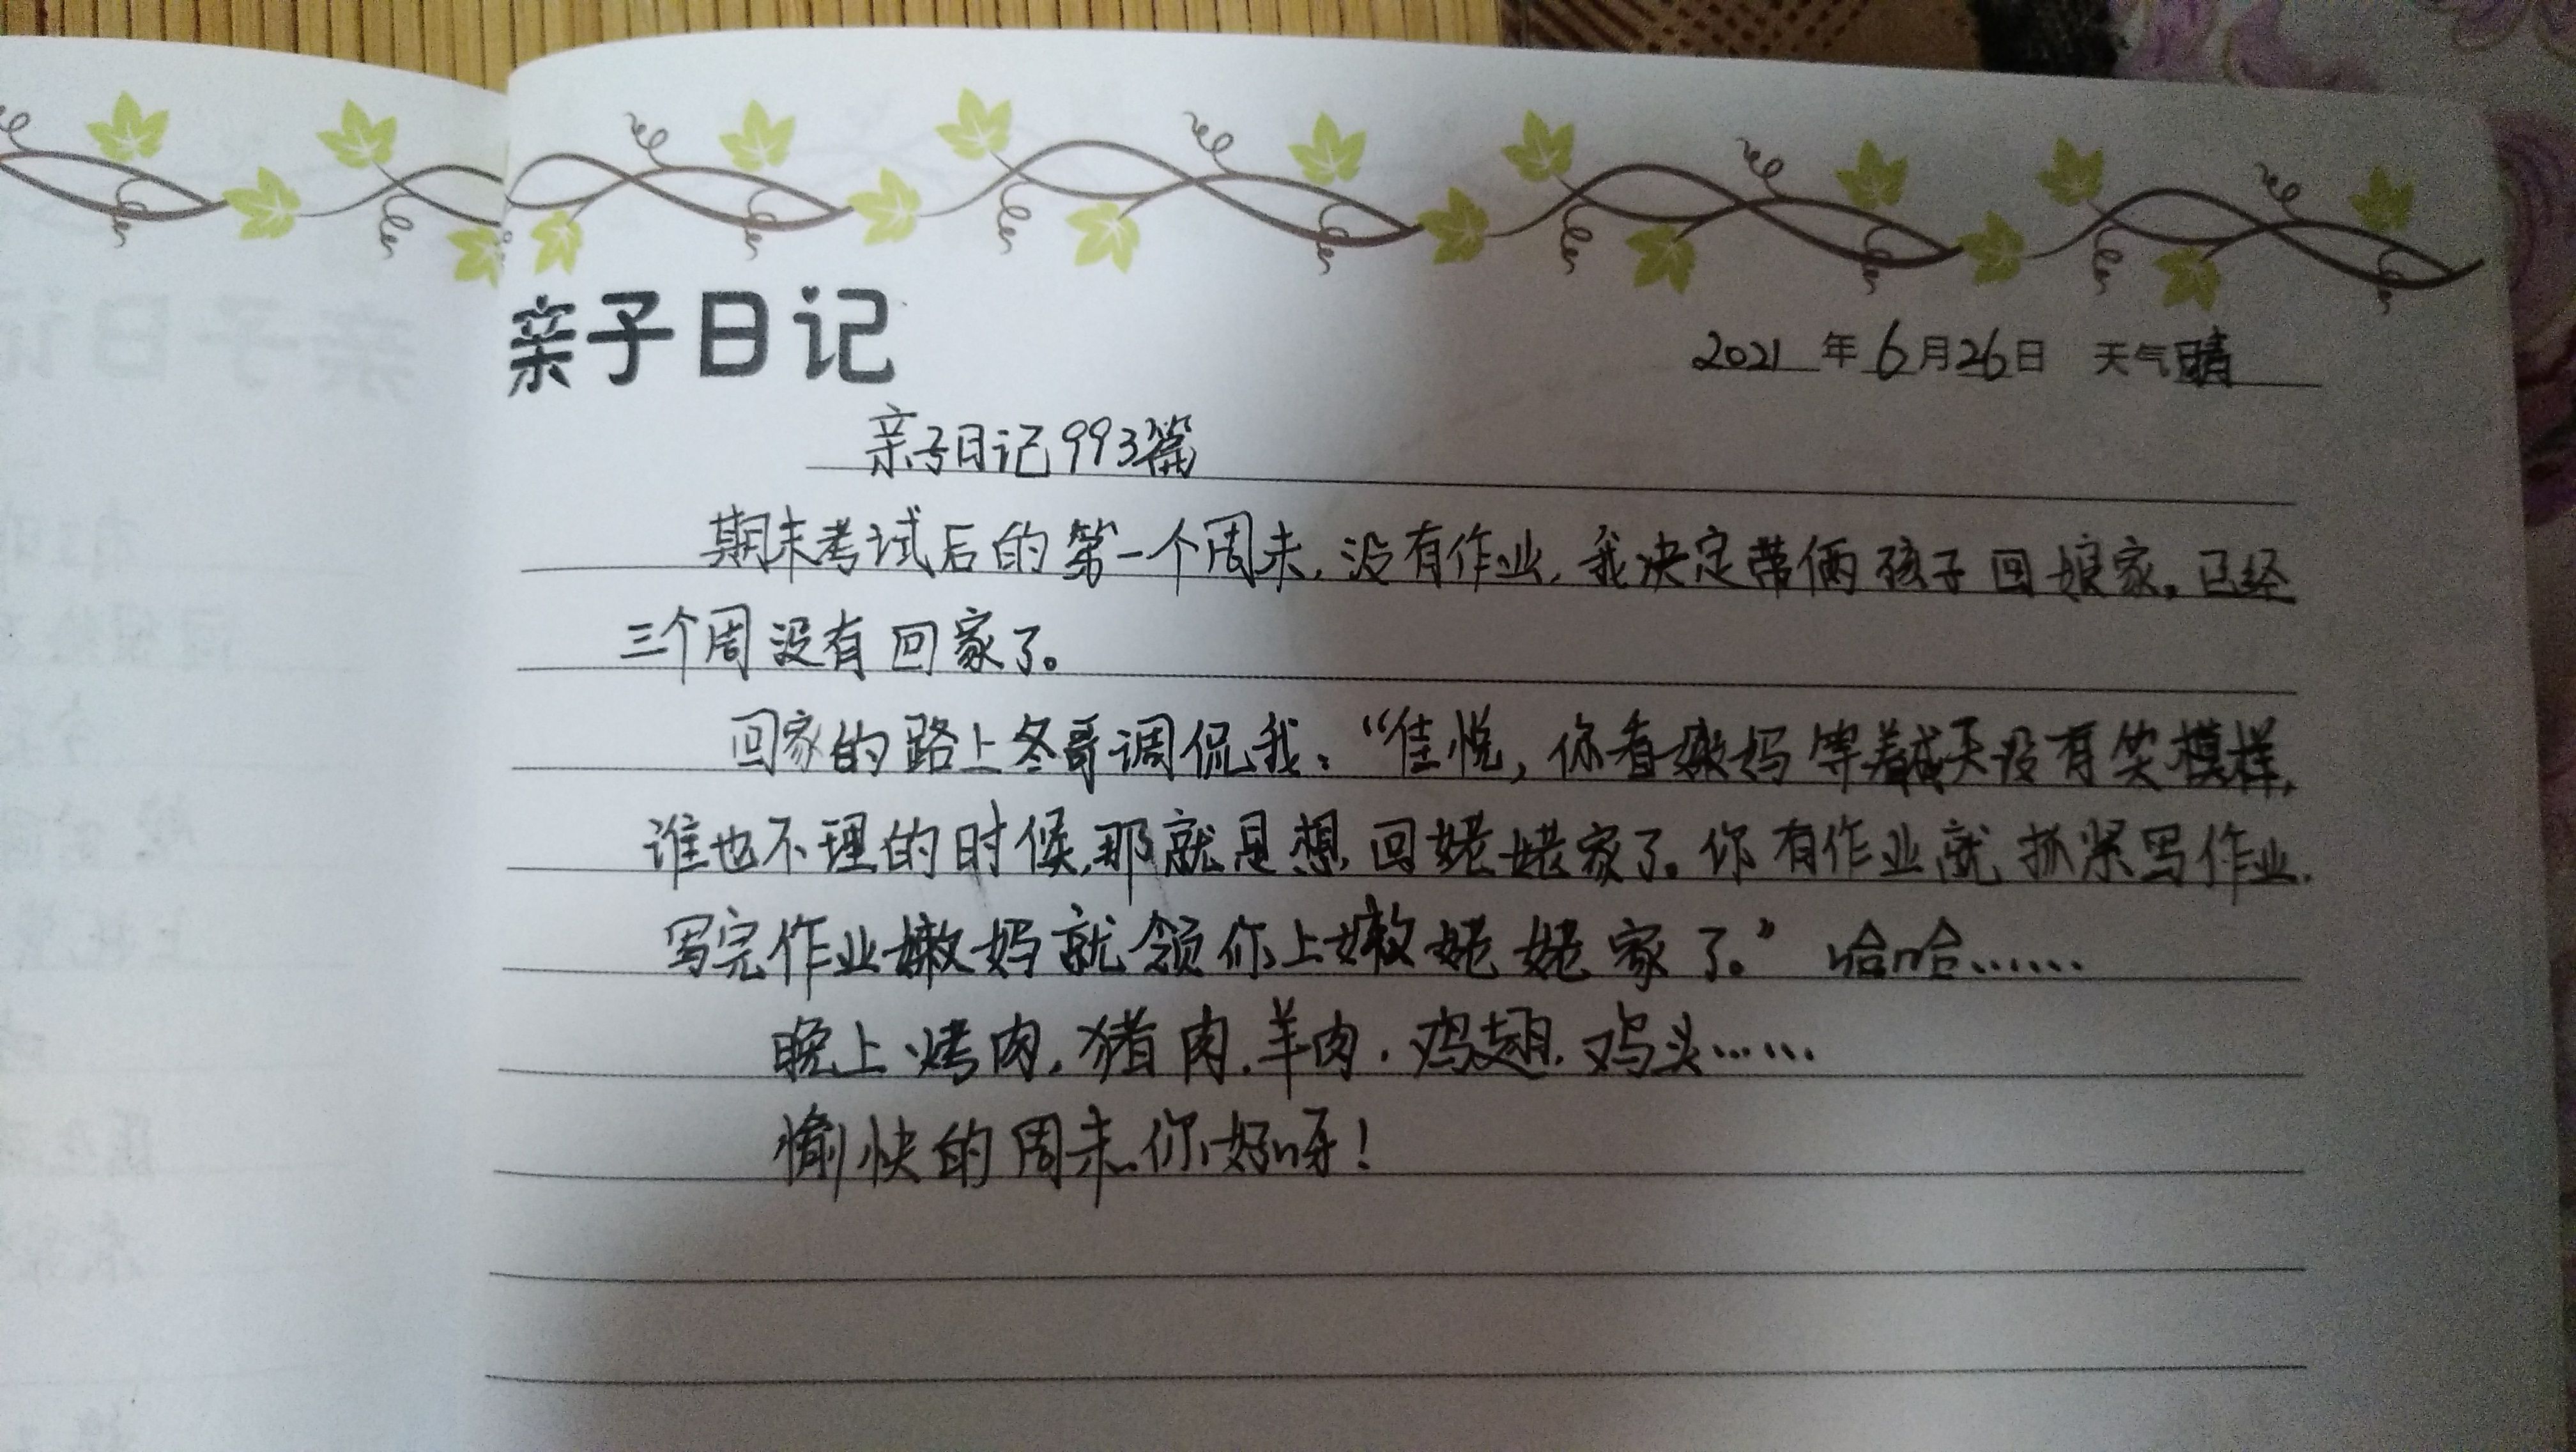 亲子日记
2021年6月26日 天气晴
亲子日记993篇
期末考试后的第一个周末,没有作业,我决定带俩孩子回娘家。已经
三个周没有回家了。
回家的路上冬哥调侃我:“佳悦,你看嫩妈等着成天没有笑模样,
谁也不理的时候,那就是想回姥姥家了。你有作业就抓紧写作业.
写完作业嫩妈就领你上嫩姥姥家了。”哈哈……
晚上烤肉,猪肉,羊肉,鸡翅,鸡头……
愉快的周末,你好呀!